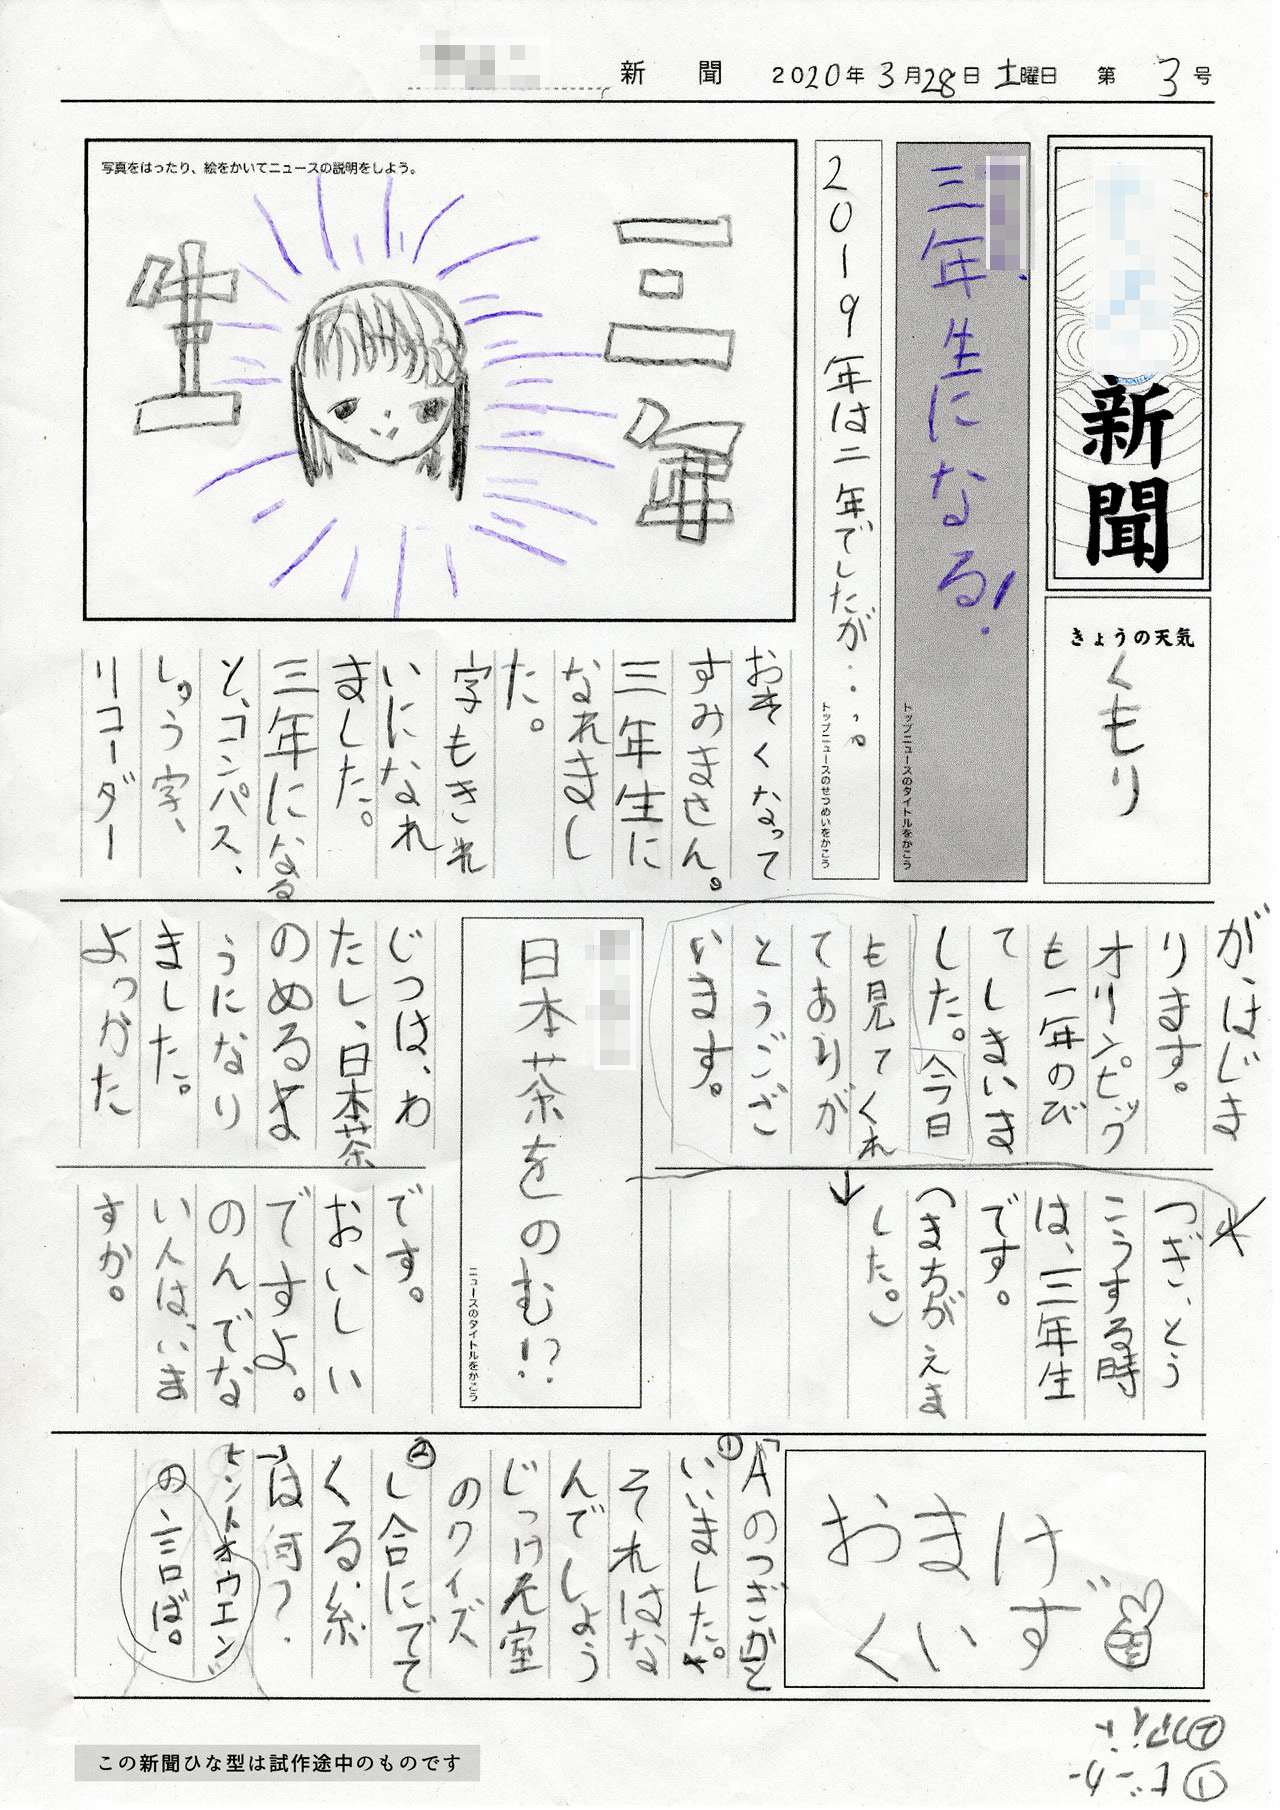 新聞 2020年3月28日土曜日 第3号
新聞
きょうの天気
くもり
三年生になる!
トップニュースのタイトルをかこう
2019年は二年でしたが・・・。
トップニュースのせつめいをかこう
写真をはったり、絵をかいてニュースの説明をしよう。
三年
生
おそくなって
すみません。
三年生に
なれまし
た。
字もきれ
いになれ
ました。
三年になる
と、コンパス、
しゅう字、
リコーダー
が、はじま
ります。
オリンピック
も一年のび
てしまいま
した。今日
も見てくれ
てありが
とうござ
います。
つぎ、とう
こうする時
は、三年生
です。
(まちがえま
した。)
日本茶をのむ!?
ニュースのタイトルをかこう
じつは、わ
たし、日本茶
のめるよ
うになり
ました。
よかった
です。
おいしい
ですよ。
のんでな
い人は、いま
すか。
おまけ
くいず
①「Aのつぎかと
いいました。
それはな
んでしょう
じっけん室
のクイズ
②し合にでて
くる糸
は何?
ヒントオウエン
の言ば。
①ビーカー
②ファイト
この新聞ひな型は試作途中のものです